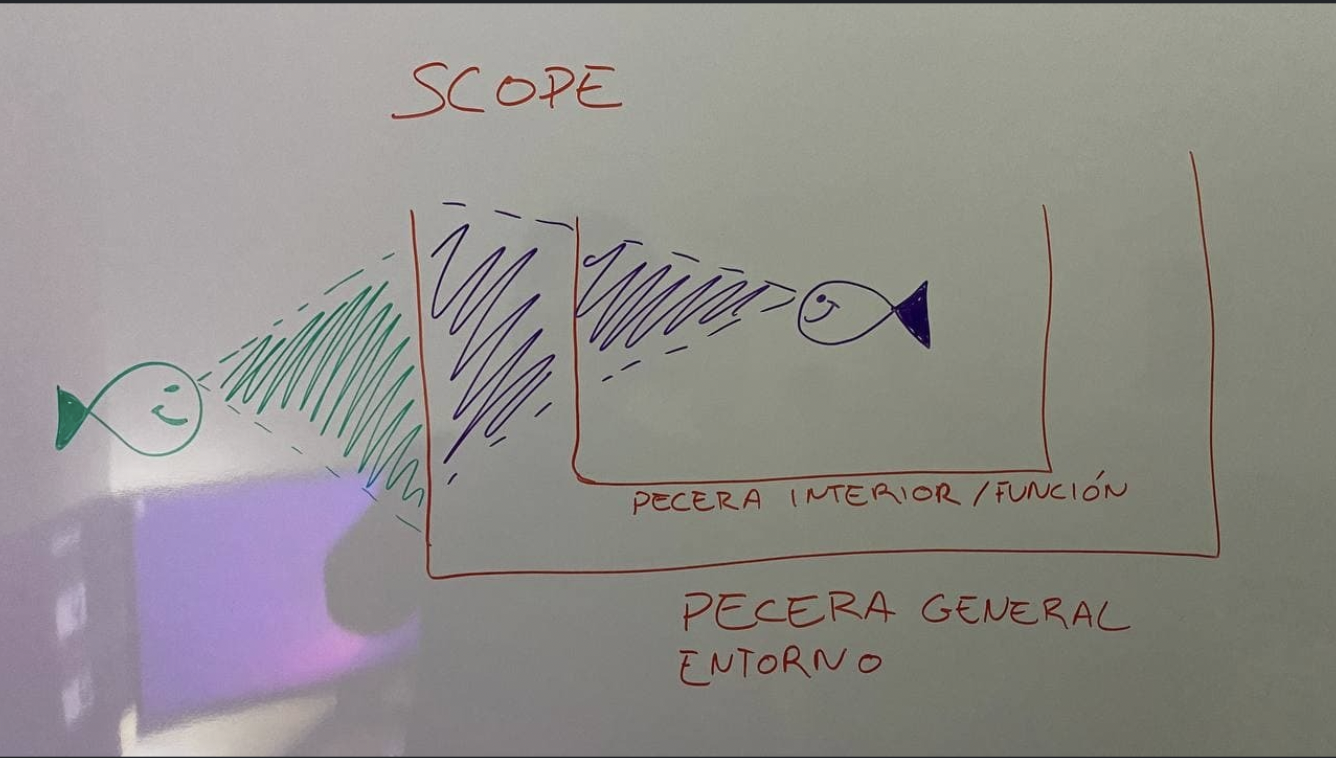 SCOPE
PECERA INTERIOR / FUNCIÓN
PECERA GENERAL
ENTORNO